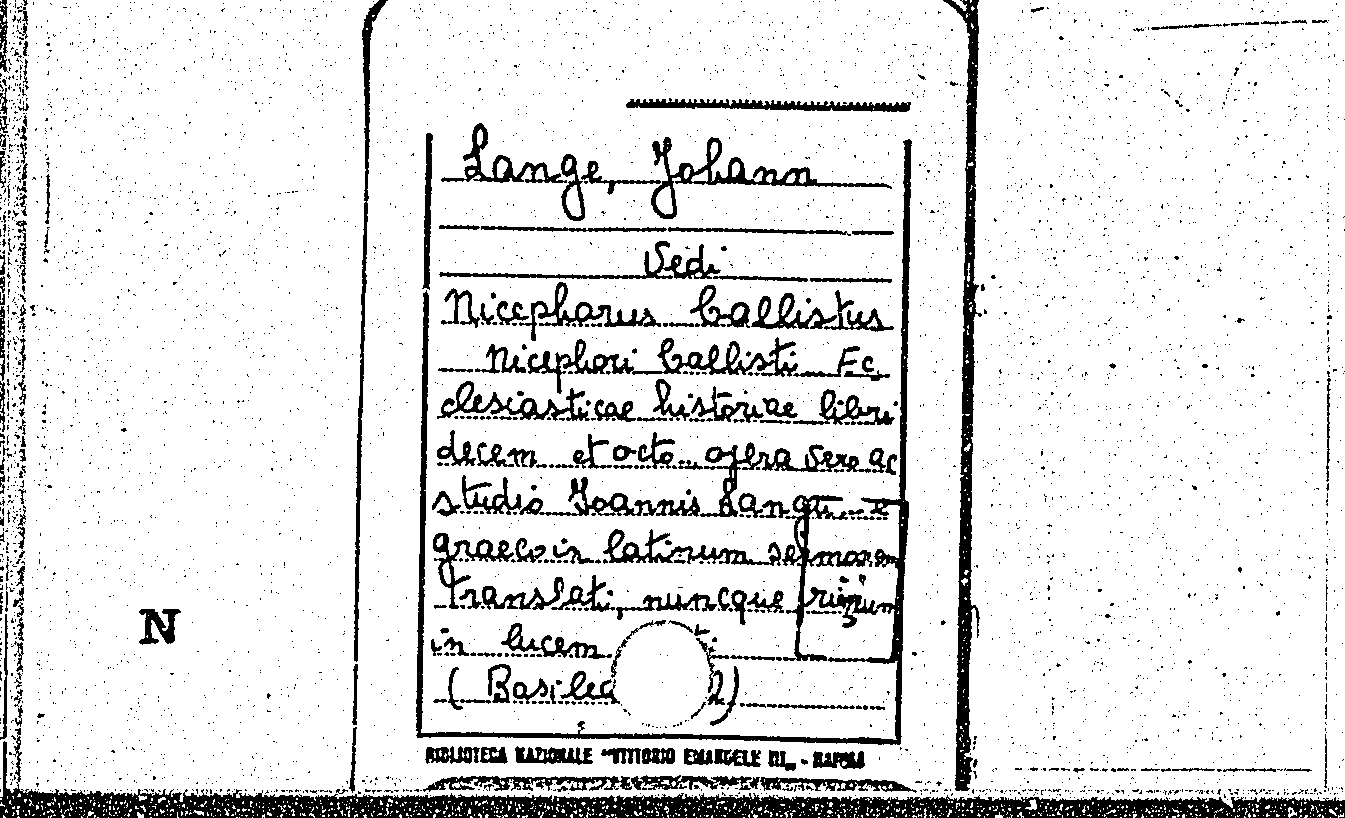 Lange, Johann
Vedi
Nicephorus Callistus
Nicephori Callisti Ec
clesiasticae historiae libri
decem et octo... opera vero ac
studio Joannis Langi... e
graeco in latinum sermonem
translati, nuncque primum
in lucem
(Basilea
N
BIBLIOTECA NAZIONALE "VITTORIO EMANUELE III" - NAPOLI